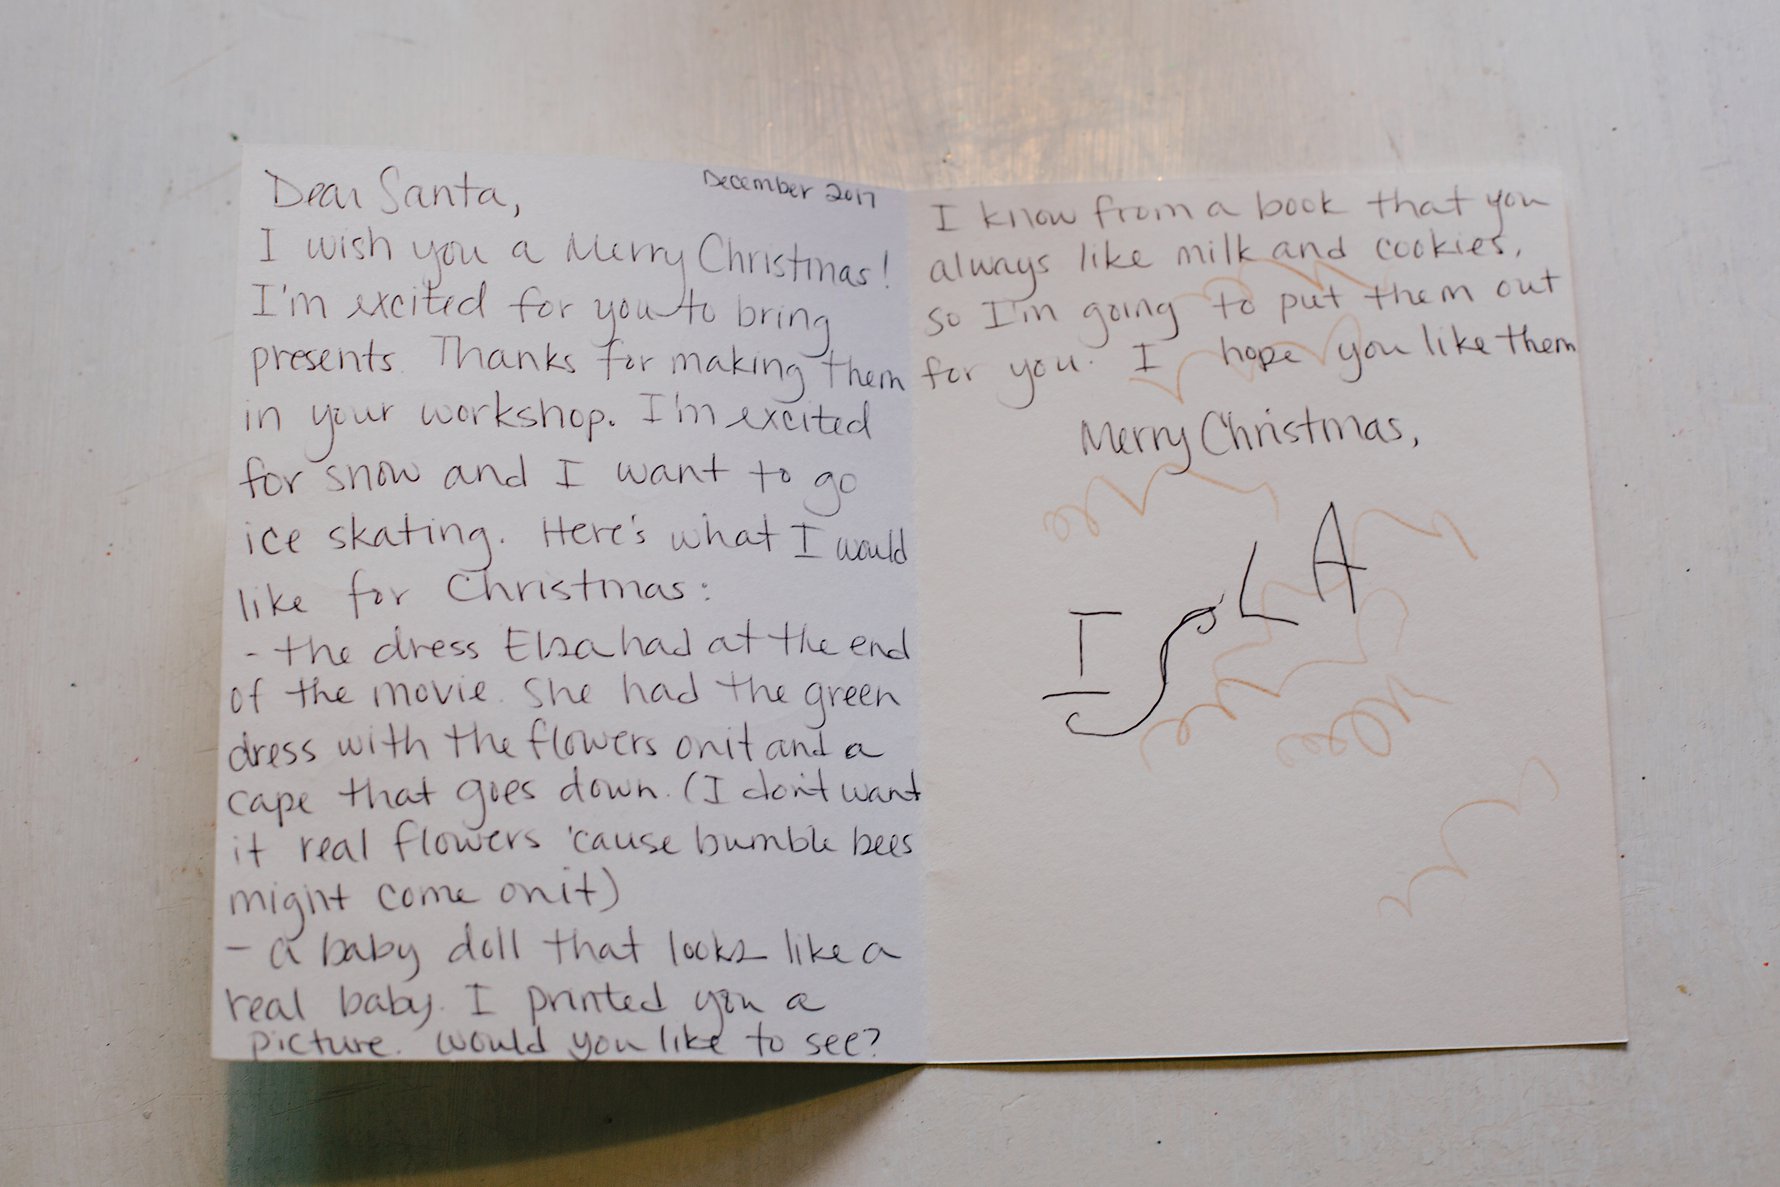 December 2017
Dear Santa,
I wish you a Merry Christmas!
I'm excited for you to bring
presents. Thanks for making them
in your workshop. I'm excited
for snow and I want to go
ice skating. Here's what I would
like for Christmas:
- the dress Elsa had at the end
of the movie. She had the green
dress with the flowers on it and a
cape that goes down. (I don't want
it real flowers 'cause bumble bees
might come on it)
- a baby doll that looks like a
real baby. I printed you a
picture. Would you like to see?
I know from a book that you
always like milk and cookies,
so I'm going to put them out
for you. I hope you like them
Merry Christmas,
ISLA